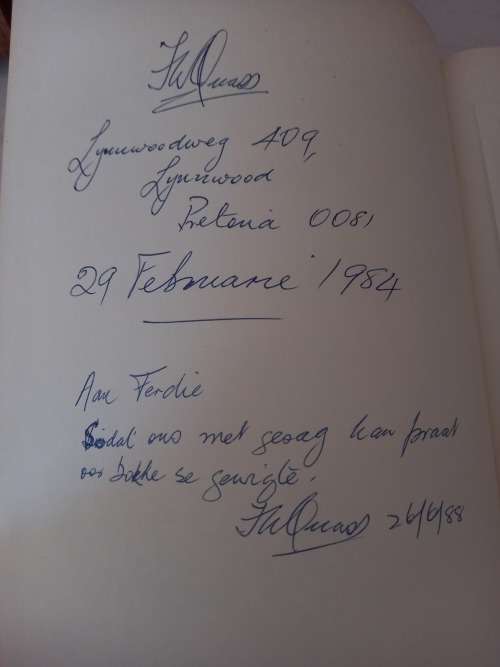 Quass
Lynnwoodweg 409,
Lynnwood
Pretoria 0081
29 Februarie 1984
Aan Ferdie
Sodat ons met gesag kan praat
oor bokke se gewigte.
Quass 26/6/88